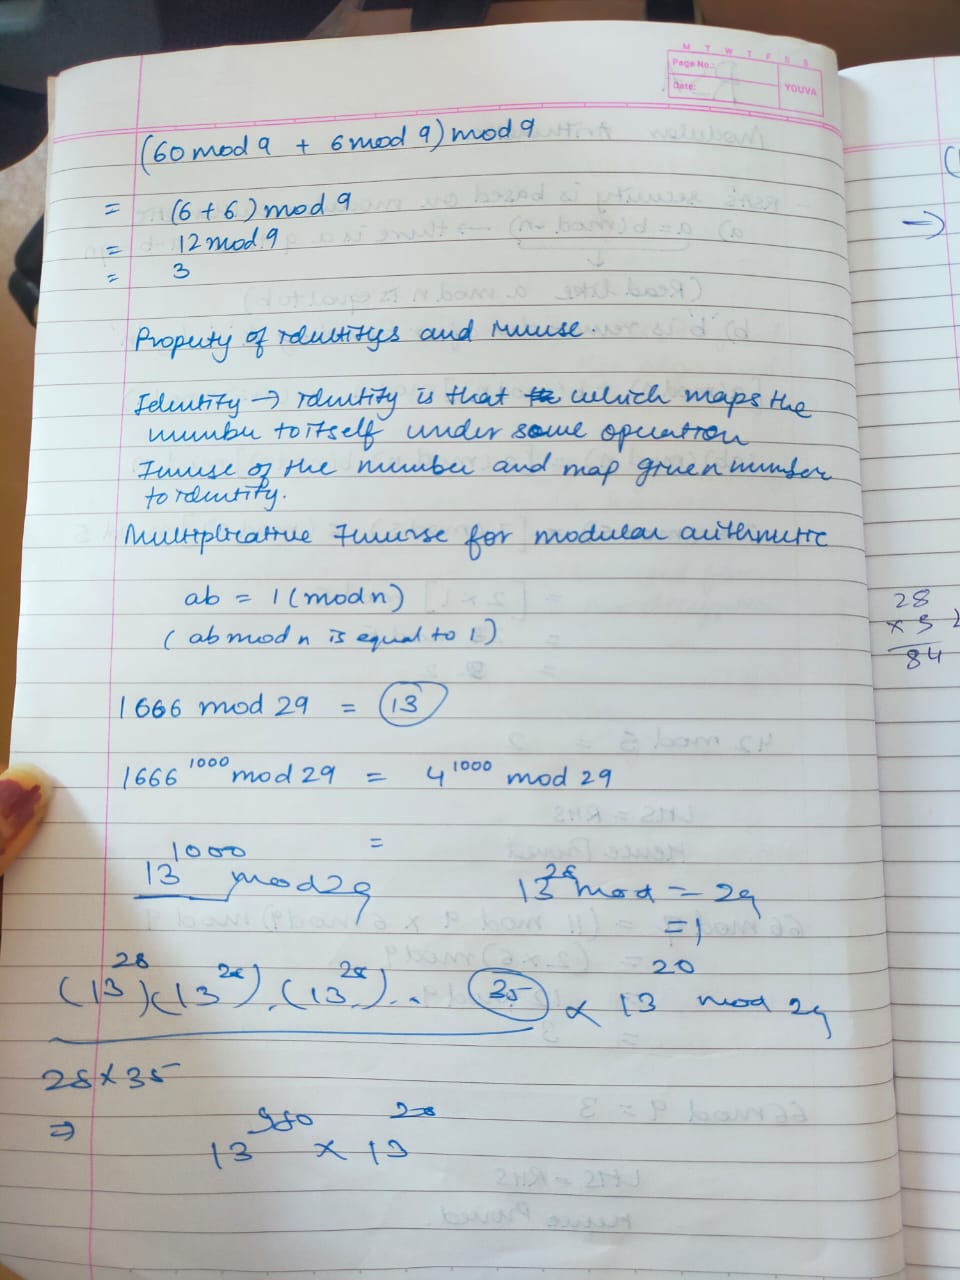 M T W T F S S
Page No.:
Date:
YOUVA
(60 mod 9 + 6 mod 9) mod 9
= (6 + 6) mod 9
= 12 mod 9
= 3
Property of Identitys and Inverse.
Identity → Identity is that which maps the
number to itself under some operation
Inverse of the number and map given number
to identity.
Multiplicative Inverse for modular arithmetic
ab = 1 (mod n)
(ab mod n is equal to 1)
1666 mod 29 = 13
1666^1000 mod 29 = 4^1000 mod 29
=
13^1000 mod 29
13^28 mod = 29
= 1
(13^28)(13^28).(13^28).. 35 × 13^20 mod 29
28 × 35
⇒ 13^980 × 13^20
28
× 3
84